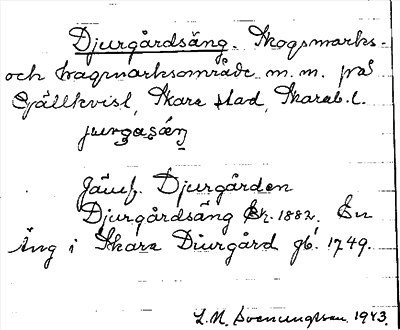 Djurgårdsäng. Skogsmarks-
och hagmarksområde m.m. på
Gällkvist, Skara stad, Skarab.l.
Jämf. Djurgården
Djurgårdsäng Ek. 1882. En
äng i Skara Diurgård gb. 1749.
L. N. Svenungsson. 1943.